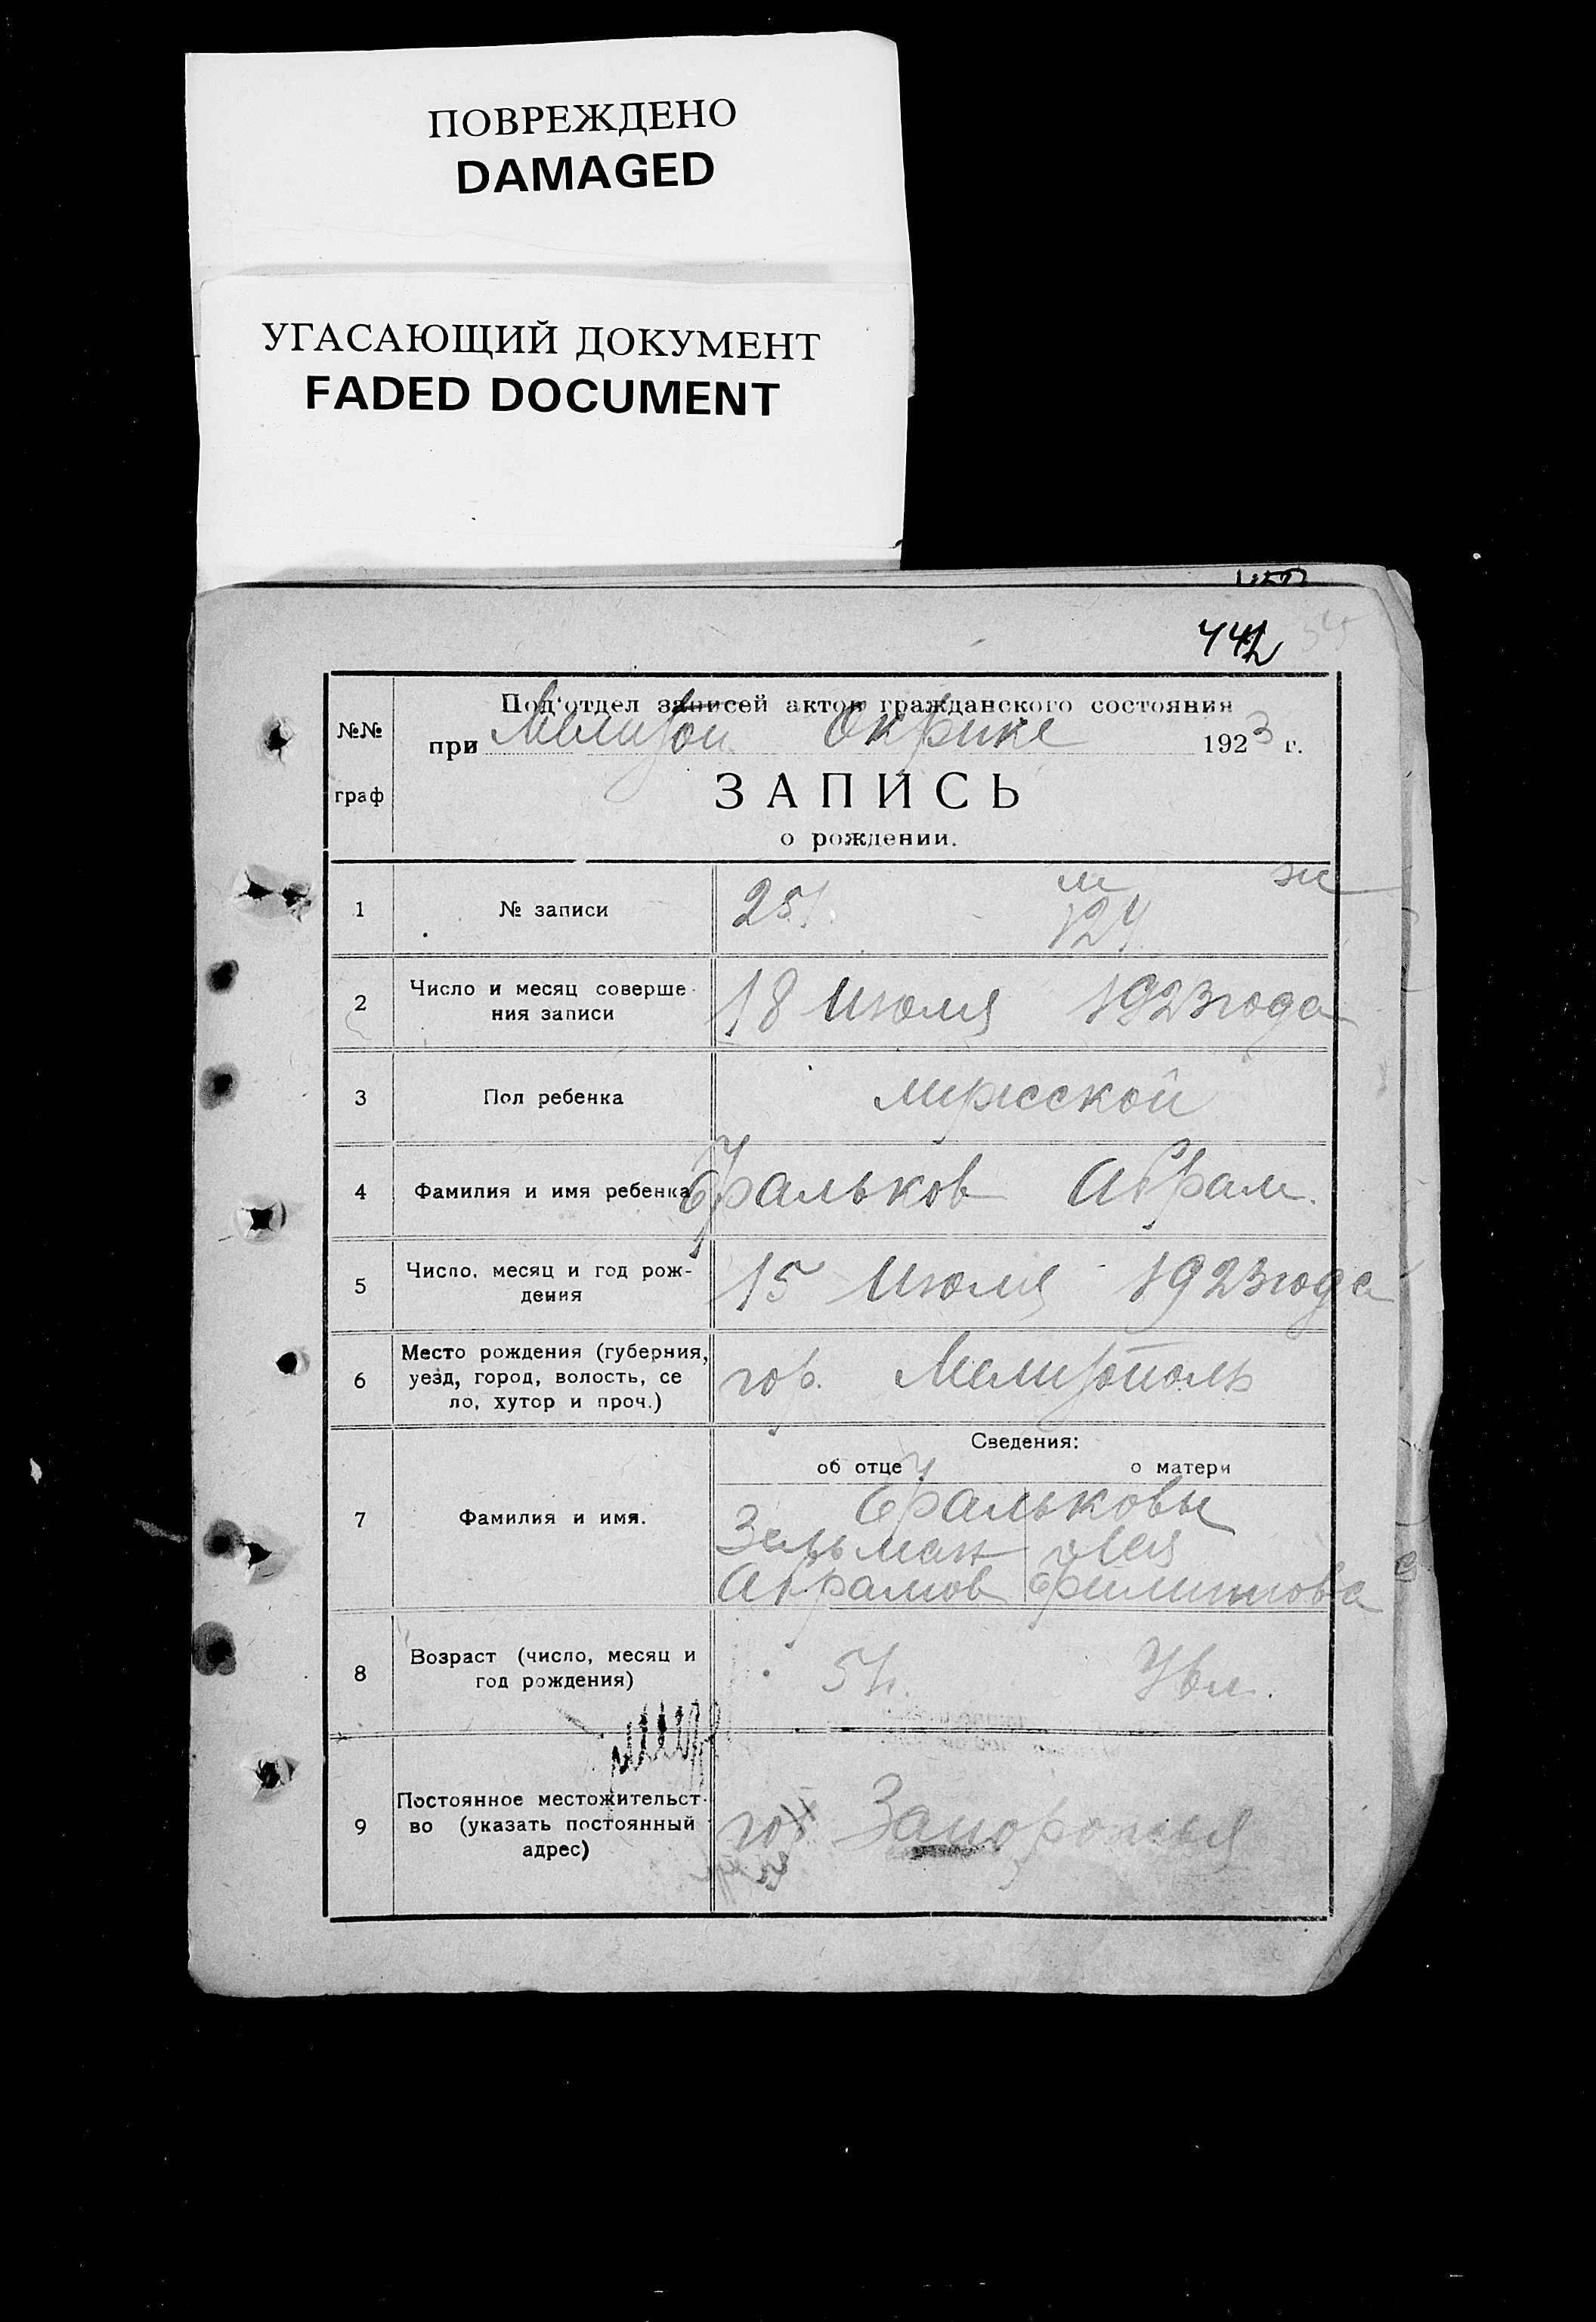 ПОВРЕЖДЕНО
DAMAGED
УГАСАЮЩИЙ ДОКУМЕНТ
FADED DOCUMENT
442
№№ граф
Под'отдел записей актов гражданского состояния
при Мелитоп. Окрике 1923 г.
ЗАПИСЬ
о рождении.
м ж
1 № записи 251. 124
2 Число и месяц соверше-
ния записи 18 Июля 1923 года
3 Пол ребенка мужской
4 Фамилия и имя ребенка Фальков Абрам.
5 Число, месяц и год рож-
дения 15 Июля 1923 года
6 Место рождения (губерния,
уезд, город, волость, се
ло, хутор и проч.) гор. Мелитополь
Сведения:
об отце о матери
7 Фамилия и имя. Фальковы
Зельман Лея
Абрамов Филиппова
8 Возраст (число, месяц и
год рождения)
9 Постоянное местожительст-
во (указать постоянный
адрес) гор Запорожья